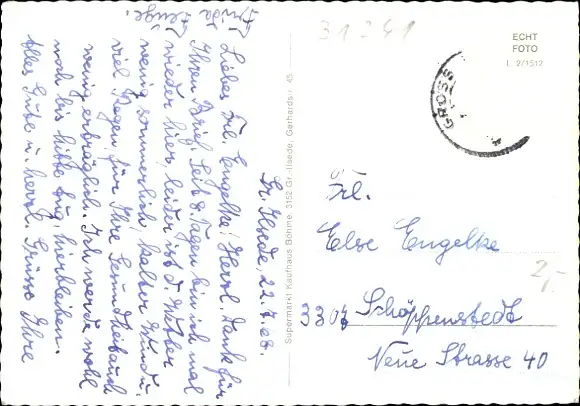 Gr. Ilsede, 22.7.68.
Liebes Frl. Engelke! Herzl. Dank für
Ihren Brief. Seit 8 Tagen bin ich mal
wieder hier, leider ist d. Wetter
wenig sommerlich, kalter Wind u.
viel Regen, für Ihre
wenig erträglich. Ich werde wohl
noch bis Mitte Aug. hierbleiben.
Alles Gute u. herzl. Grüsse Ihre
Frieda
Supermarkt Kaufhaus Böhme, 3152 Gr.-Ilsede, Gerhardstr. 45
31241
ECHT
FOTO
L 2/1512
GROSS
Frl.
Else Engelke
3307 Schöppenstedt
Neue Strasse 40
2,-